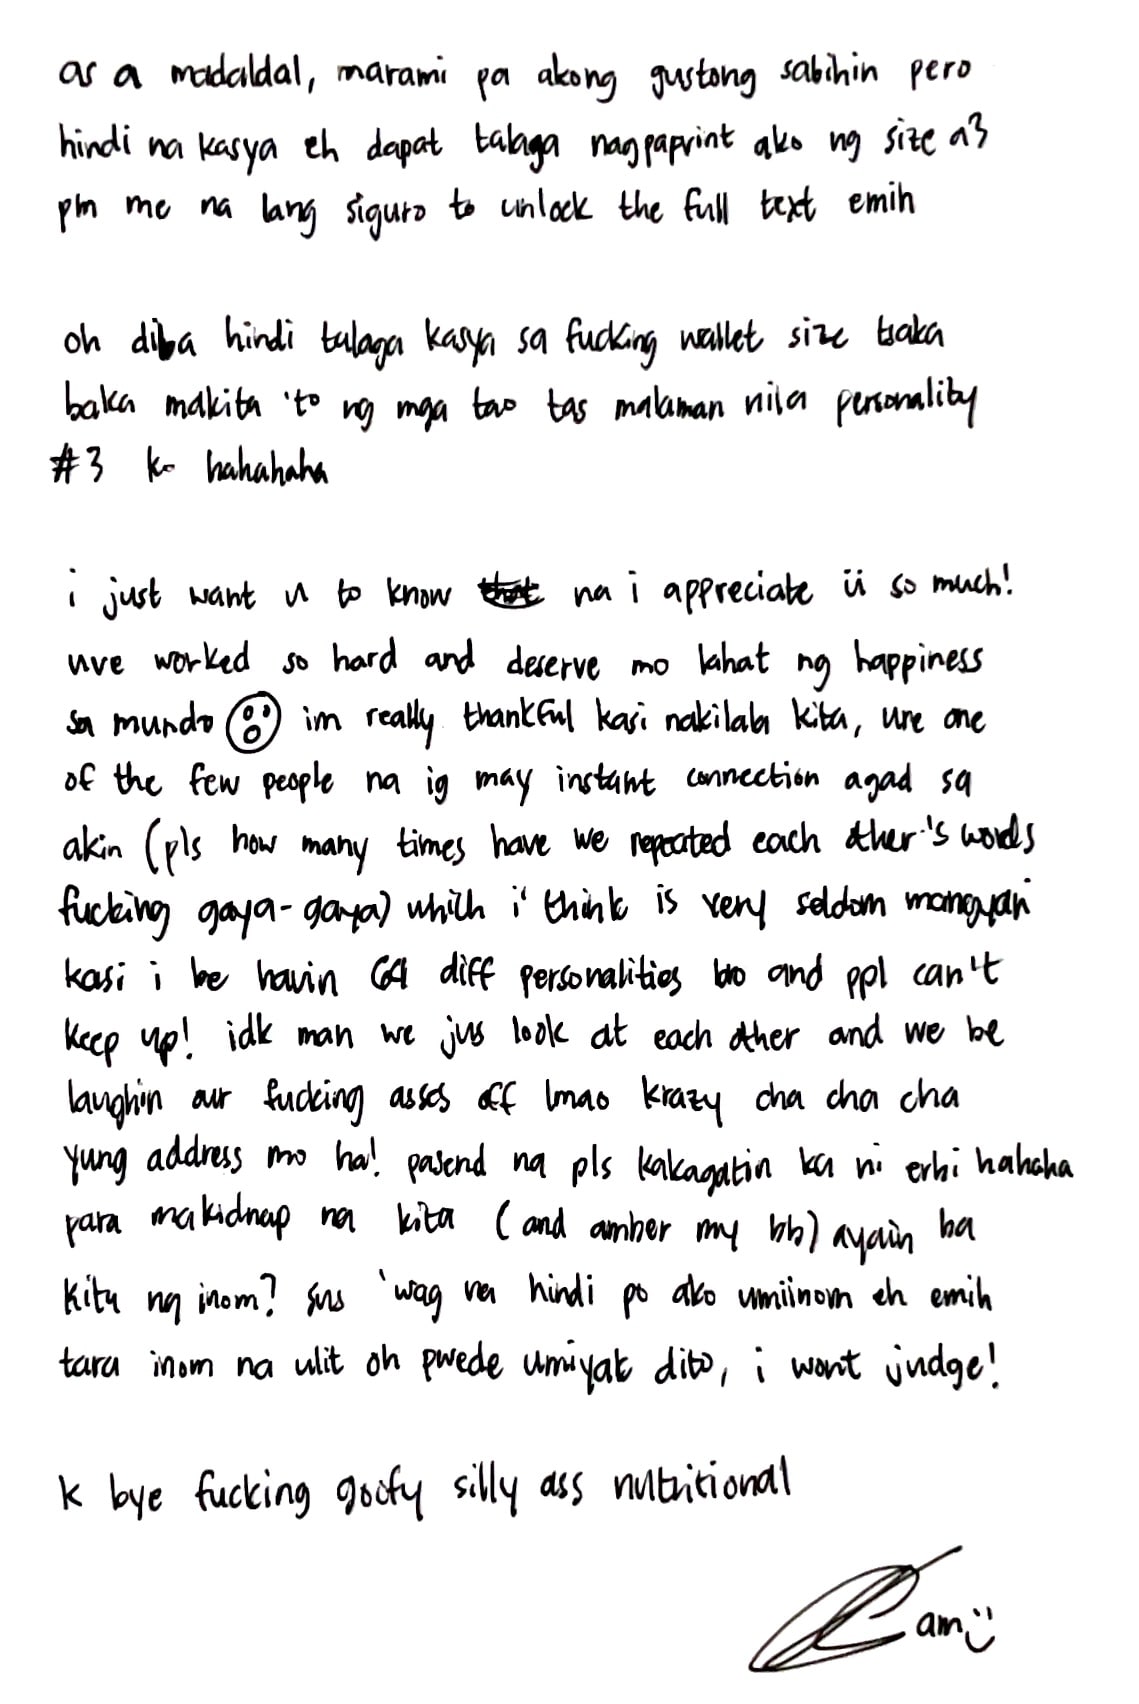 as a madaldal, marami pa akong gustong sabihin pero
hindi na kasya eh dapat talaga nagpaprint ako ng size a3
pm me na lang siguro to unlock the full text emih
oh diba hindi talaga kasya sa fucking wallet size tsaka
baka makita 'to ng mga tao tas malaman nila personality
#3 ko hahahaha
i just want u to know that na i appreciate ü so much!
uve worked so hard and deserve mo lahat ng happiness
sa mundo im really thankful kasi nakilala kita, ure one
of the few people na ig may instant connection agad sa
akin (pls how many times have we repeated each other's words
fucking gaya-gaya) which i think is very seldom mangyari
kasi i be havin 64 diff personalities bro and ppl can't
keep up! idk man we jus look at each other and we be
laughin our fucking asses off lmao krazy cha cha cha
yung address mo ha! pasend na pls kakagatin ka ni erhi hahaha
para makidnap na kita (and amber my bb) ayain ba
kita ng inom? sus 'wag na hindi po ako umiinom eh emih
tara inom na ulit oh pwede umiyak dito, i wont judge!
k bye fucking goofy silly ass nutritional
Cam